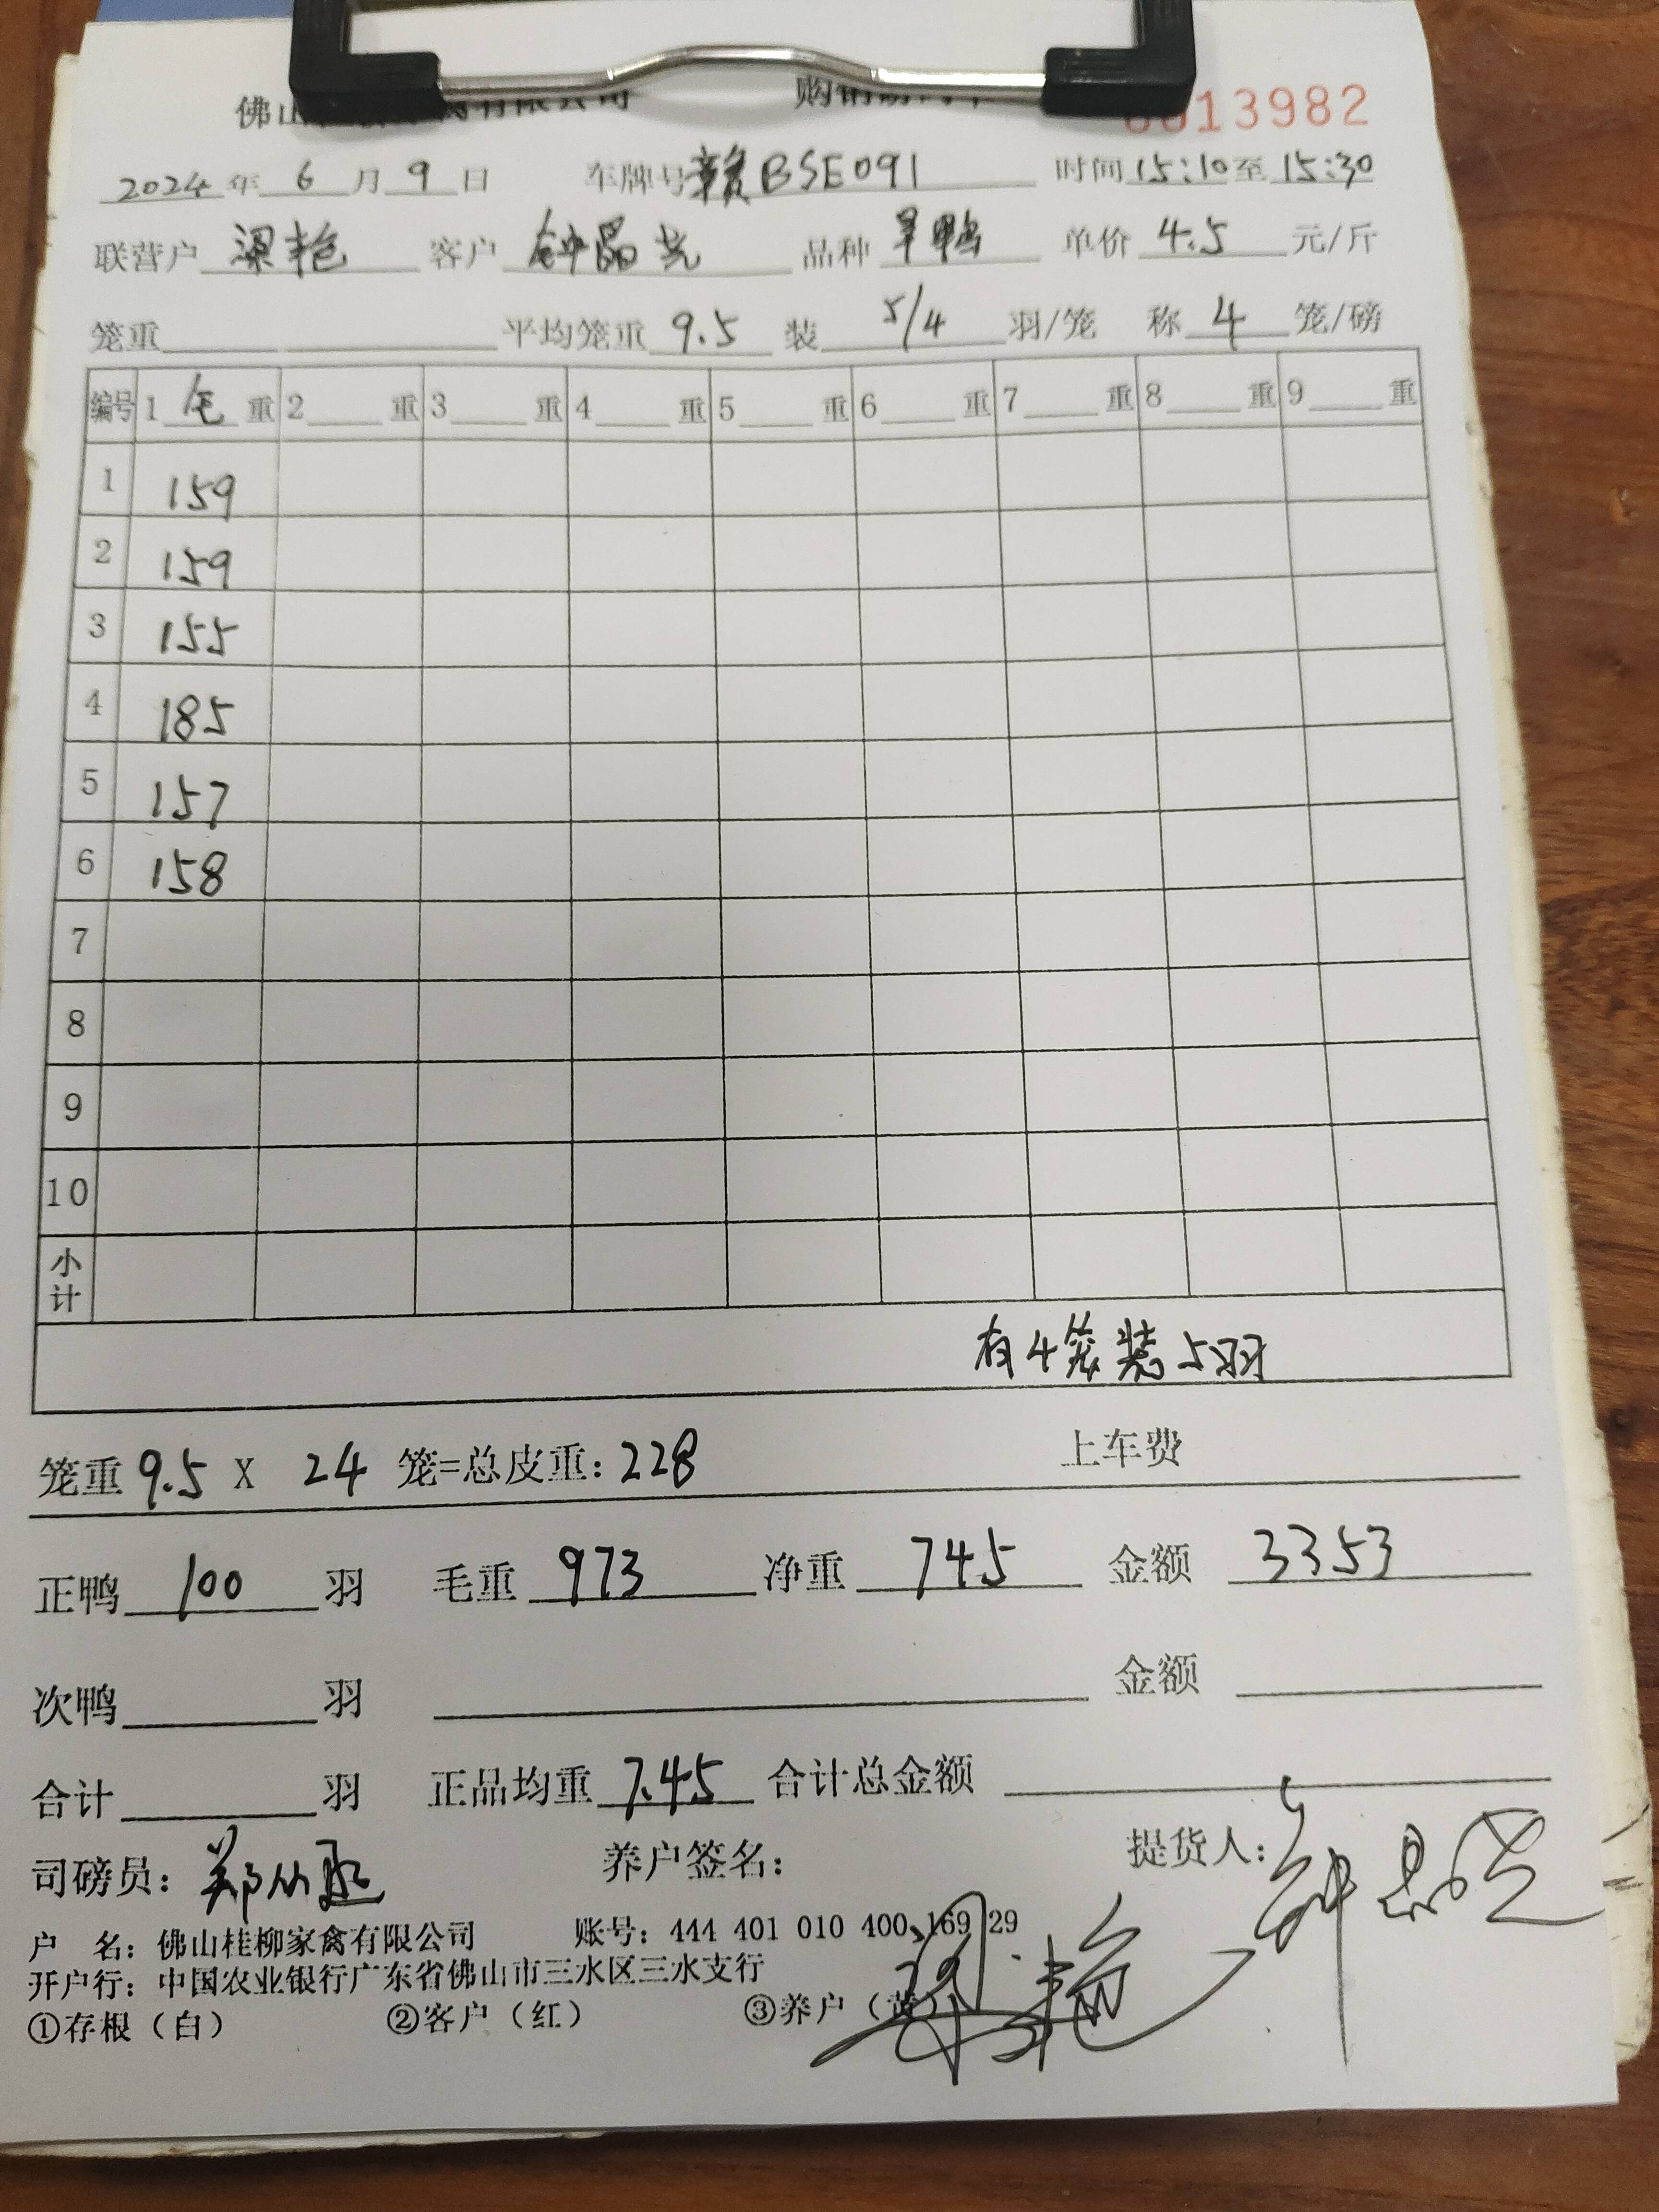 佛山 有限公司 购销 13982
2024 年 6 月 9 日 车牌号 赣BSE091 时间 15:10 至 15:30
联营户 梁艳 客户 钟晶光 品种 旱鸭 单价 4.5 元/斤
笼重 平均笼重 9.5 装 5/4 羽/笼 称 4 笼/磅
编号 1 毛 重 2 重 3 重 4 重 5 重 6 重 7 重 8 重 9 重
1 159
2 159
3 155
4 185
5 157
6 158
7
8
9
10
小计
有4笼装5羽
笼重 9.5 X 24 笼=总皮重: 228 上车费
正鸭 100 羽 毛重 973 净重 745 金额 3353
次鸭 羽 金额
合计 羽 正品均重 7.45 合计总金额
司磅员: 郑 养户签名: 梁艳 提货人: 钟晶光
户 名: 佛山桂柳家禽有限公司 账号: 444 401 010 400 169 29
开户行: 中国农业银行广东省佛山市三水区三水支行
①存根（白） ②客户（红） ③养户（黄）